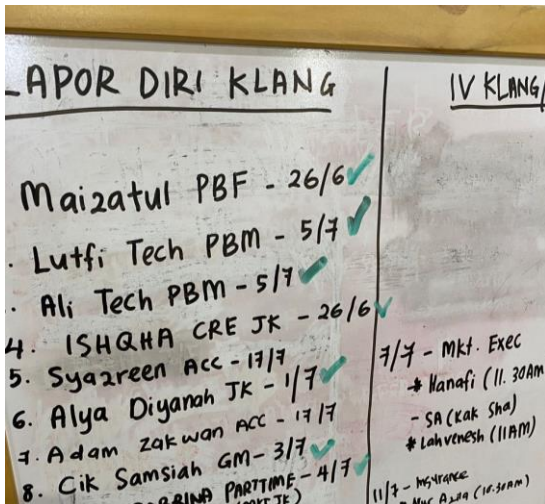 LAPOR DIRI KLANG
Maizatul PBF - 26/6 ✓
. Lutfi Tech PBM - 5/7 ✓
. Ali Tech PBM - 5/7 ✓
4. ISHQHA CRE JK - 26/6 ✓
5. Syazreen ACC - 17/7
6. Alya Diyanah JK - 1/7 ✓
7. Adam Zakwan ACC - 17/7
8. Cik Samsiah GM - 3/7 ✓
PARTTIME - 4/7 ✓
IV KLANG/
7/7 - Mkt. Exec
* Hanafi (11.30AM
- SA (Kak Sha)
* Lahvenesh (11AM)
11/7 - Insurance
(10.30AM)